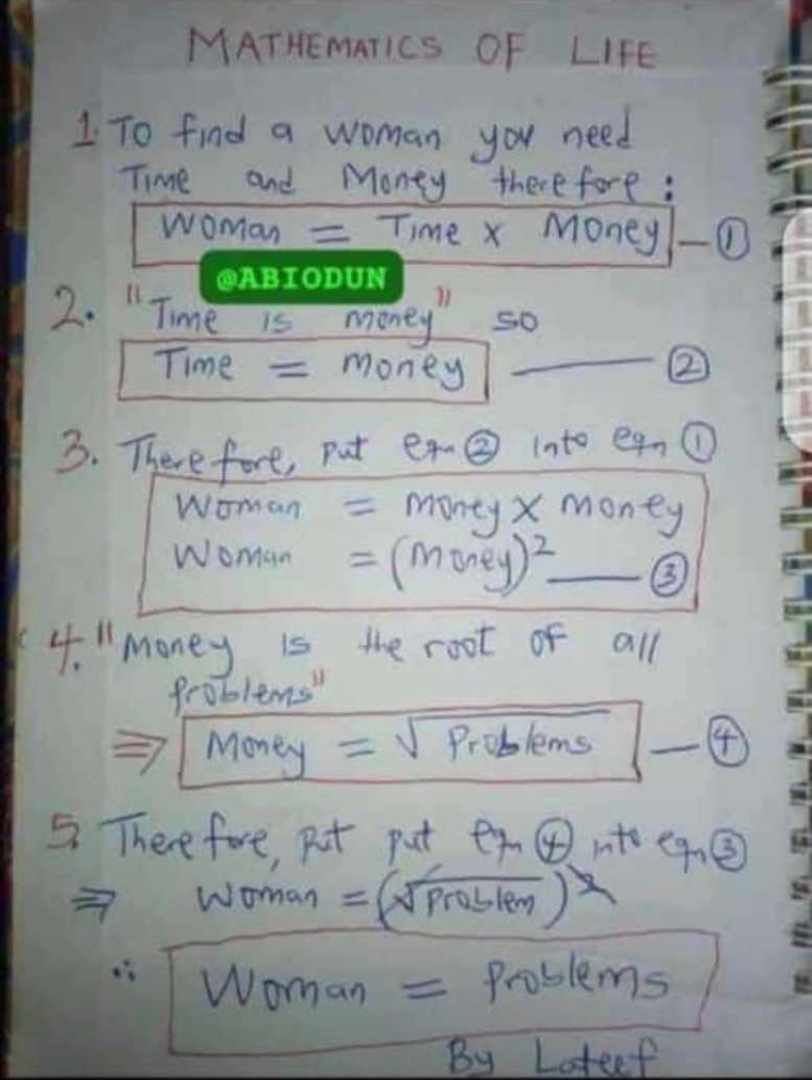 MATHEMATICS OF LIFE
1. TO find a woman you need
Time and Money therefore :
Woman = Time x Money — ①
@ABIODUN
2. "Time is money" so
Time = money — ②
3. Therefore, put eqn ② into eqn ①
Woman = money x money
Woman = (money)² — ③
4. "Money is the root of all
problems"
⇒ Money = √Problems — ④
5. Therefore, put put eqn ④ into eqn ③
⇒ Woman = (√Problem)²
∴ Woman = Problems
By Lateef